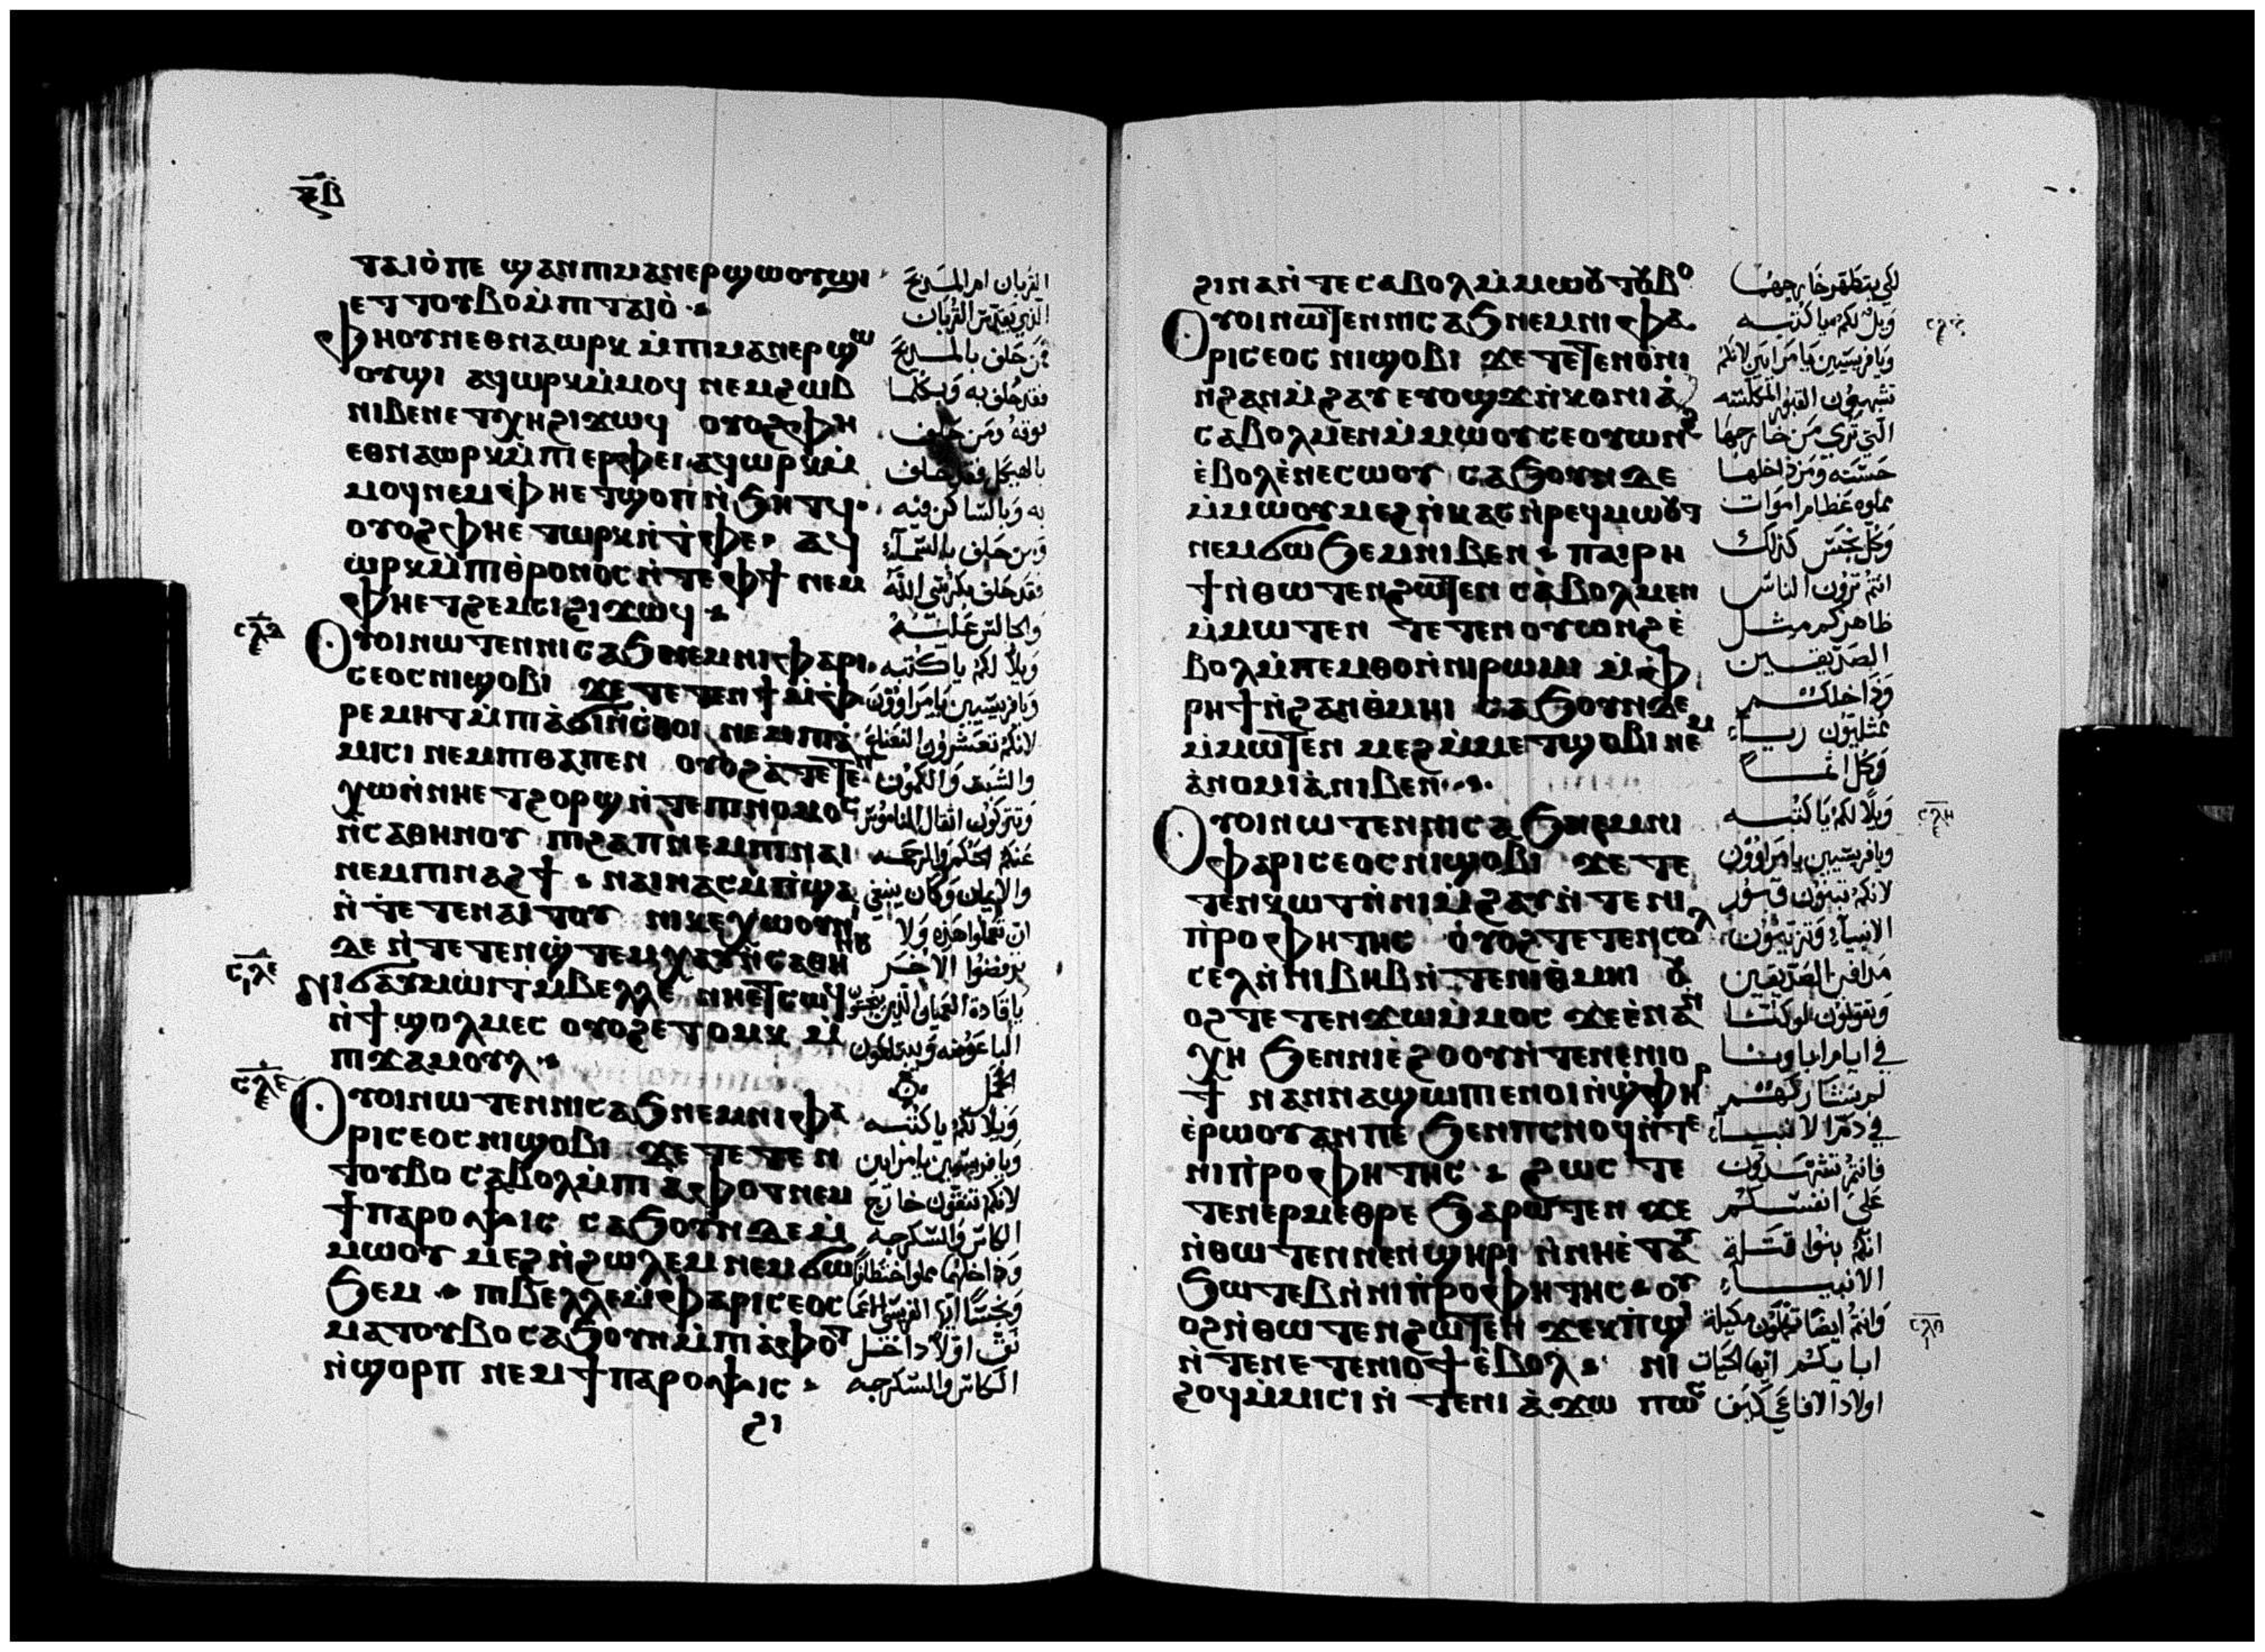 ⲝ̅ⲃ̅
ⲧⲁⲓⲟ̀ ⲡⲉ ϣⲁⲛ ⲡⲓⲙⲁⲛⲉⲣϣⲱⲟⲩϣⲓ
ⲉⲧⲧⲟⲩⲃⲟ ⲙ̀ⲡⲓⲧⲁⲓⲟ̀
ⲫⲏ ⲟⲩⲛ ⲉⲑⲛⲁⲱⲣⲕ ⲙ̀ⲡⲓⲙⲁⲛⲉⲣϣⲱ
ⲟⲩϣⲓ ⲁϥⲱⲣⲕ ⲙ̀ⲙⲟϥ ⲛⲉⲙ ϩⲱⲃ
ⲛⲓⲃⲉⲛ ⲉⲧⲭⲏ ϩⲓϫⲱϥ ⲟⲩⲟϩ ⲫⲏ
ⲉⲑⲛⲁⲱⲣⲕ ⲙ̀ⲡⲓⲉⲣⲫⲉⲓ ⲁϥⲱⲣⲕ ⲙ̀
ⲙⲟϥ ⲛⲉⲙ ⲫⲏ ⲉⲧϣⲟⲡ ⲛ̀ϧⲏⲧϥ
ⲟⲩⲟϩ ⲫⲏ ⲉⲧⲱⲣⲕ ⲛ̀ⲧⲫⲉ ⲁϥ
ⲱⲣⲕ ⲙ̀ⲡⲓⲑⲣⲟⲛⲟⲥ ⲛ̀ⲧⲉ ⲫϯ ⲛⲉⲙ
ⲫⲏ ⲉⲧϩⲉⲙⲥⲓ ϩⲓϫⲱϥ
ⲟⲩⲟⲓ ⲛⲱⲧⲉⲛ ⲛⲓⲥⲁϧ ⲛⲉⲙ ⲛⲓⲫⲁⲣⲓ
ⲥⲉⲟⲥ ⲛⲓϣⲟⲃⲓ ϫⲉ ⲧⲉⲧⲉⲛϯ ⲙ̀ⲫ
ⲣⲉⲙⲏⲧ ⲙ̀ⲡⲓⲁ̀ϭⲓⲛⲥⲑⲟⲓ ⲛⲉⲙ ⲡⲓⲁ̀
ⲙⲓⲥⲓ ⲛⲉⲙ ⲡⲓⲑⲁⲡⲉⲛ ⲟⲩⲟϩ ⲁ̀ⲧⲉⲧⲉⲛ
ⲭⲱ ⲛ̀ⲛⲏ ⲉⲧϩⲟⲣϣ ⲛ̀ⲧⲉ ⲡⲓⲛⲟⲙⲟⲥ
ⲛ̀ⲥⲁⲑⲏⲛⲟⲩ ⲡⲓϩⲁⲡ ⲛⲉⲙ ⲡⲓⲛⲁⲓ
ⲛⲉⲙ ⲡⲓⲛⲁϩϯ ⲛⲁⲓ ⲛⲁⲥⲙ̀ⲡϣⲁ
ⲛ̀ⲧⲉⲧⲉⲛⲁⲓⲧⲟⲩ ⲛⲓⲕⲉⲭⲱⲟⲩⲛⲓ
ⲇⲉ ⲛ̀ⲧⲉⲧⲉⲛϣ̀ⲧⲉⲙⲭⲁⲩ ⲛ̀ⲥⲁⲑⲏⲛⲟⲩ
ⲛⲓϭⲁⲩⲙⲱⲓⲧ ⲙ̀ⲃⲉⲗⲗⲉ ⲛⲏ ⲉⲧⲥⲱϥ
ⲛ̀ϯϣⲟⲗⲙⲉⲥ ⲟⲩⲟϩ ⲉⲧⲱⲙⲕ ⲙ̀
ⲡⲓϫⲁⲙⲟⲩⲗ
ⲟⲩⲟⲓ ⲛⲱⲧⲉⲛ ⲛⲓⲥⲁϧ ⲛⲉⲙ ⲛⲓⲫⲁ
ⲣⲓⲥⲉⲟⲥ ⲛⲓϣⲟⲃⲓ ϫⲉ ⲧⲉⲧⲉⲛ
ⲧⲟⲩⲃⲟ ⲥⲁⲃⲟⲗ ⲙ̀ⲡⲓⲁ̀ⲫⲟⲧ ⲛⲉⲙ
ϯⲡⲁⲣⲟⲯⲓⲥ ⲥⲁϧⲟⲩⲛ ⲇⲉ ⲙ̀
ⲙⲱⲟⲩ ⲙⲉϩ ⲛ̀ϩⲱⲗⲉⲙ ⲛⲉⲙ ϭⲱ
ϧⲉⲙ ⲡⲓⲃⲉⲗⲗⲉ ⲙ̀ⲫⲁⲣⲓⲥⲉⲟⲥ
ⲙⲁⲧⲟⲩⲃⲟ ⲥⲁϧⲟⲩⲛ ⲙ̀ⲡⲓⲁ̀ⲫⲟⲧ
ⲛ̀ϣⲟⲣⲡ ⲛⲉⲙ ϯⲡⲁⲣⲟⲯⲓⲥ
ϩⲓ
القربان ام المذبح
الذي يقدس القربان
فمن حلف بالمذبح
فقد حلف به وبكلما
فوقه ومن حلف
بالهيكل فقد حلف
به وبالساكن فيه
ومن حلف بالسماء
فقد حلف بكرسي الله
والجالس عليه
ويلا لكم يا كتبه
ويا فريسيين يا مراوون
لانكم تعشرون النعناع
والشبث والكمون
وتتركون اثقال الناموس
عنكم الحكم والرحمه
والايمان وكان ينبغي
ان تعملوا هذه ولا
ترفضوا الاخر
يا قادة العميان الذين
الباعوضه ويبتلعون
الجمل
ويلا لكم يا كتبه
ويا فريسيين يا مرايين
لانكم تنقون خارج
الكاس والسكرجه
وداخلهما مملوا اختطافا
ونجسا ايها الفريسي الاعما
نق اولا داخل
الكاس والسكرجه
ϩⲓⲛⲁ ⲛ̀ⲧⲉ ⲥⲁⲃⲟⲗ ⲙ̀ⲙⲱⲟⲩ ⲧⲟⲩⲃⲟ
ⲟⲩⲟⲓ ⲛⲱⲧⲉⲛ ⲛⲓⲥⲁϧ ⲛⲉⲙ ⲛⲓⲫⲁ
ⲣⲓⲥⲉⲟⲥ ⲛⲓϣⲟⲃⲓ ϫⲉ ⲧⲉⲧⲉⲛⲟ̀ⲛⲓ
ⲛ̀ϩⲁⲛⲙ̀ϩⲁⲩ ⲉⲩⲟϣϫ ⲛ̀ⲕⲟⲛⲓⲁ̀
ⲥⲁⲃⲟⲗ ⲙⲉⲛ ⲙ̀ⲙⲱⲟⲩ ⲥⲉⲟⲩⲱⲛϩ
ⲉ̀ⲃⲟⲗ ⲉ̀ⲛⲉⲥⲱⲟⲩ ⲥⲁϧⲟⲩⲛ ⲇⲉ
ⲙ̀ⲙⲱⲟⲩ ⲙⲉϩ ⲛ̀ⲕⲁⲥ ⲛ̀ⲣⲉϥⲙⲱⲟⲩⲧ
ⲛⲉⲙ ϭⲱϧⲉⲙ ⲛⲓⲃⲉⲛ ⲡⲁⲓⲣⲏ
ϯ ⲛ̀ⲑⲱⲧⲉⲛ ϩⲱⲧⲉⲛ ⲥⲁⲃⲟⲗ ⲙⲉⲛ
ⲙ̀ⲙⲱⲧⲉⲛ ⲧⲉⲧⲉⲛⲟⲩⲱⲛϩ ⲉ̀
ⲃⲟⲗ ⲙ̀ⲡⲉⲙⲑⲟ ⲛ̀ⲛⲓⲣⲱⲙⲓ ⲙ̀ⲫ
ⲣⲏϯ ⲛ̀ϩⲁⲛⲑ̀ⲙⲏⲓ ⲥⲁϧⲟⲩⲛ ⲇⲉ
ⲙ̀ⲙⲱⲧⲉⲛ ⲙⲉϩ ⲙ̀ⲙⲉⲧϣⲟⲃⲓ ⲛⲉⲙ
ⲁ̀ⲛⲟⲙⲓⲁ̀ ⲛⲓⲃⲉⲛ
ⲟⲩⲟⲓ ⲛⲱⲧⲉⲛ ⲛⲓⲥⲁϧ ⲛⲉⲙ ⲛⲓ
ⲫⲁⲣⲓⲥⲉⲟⲥ ⲛⲓϣⲟⲃⲓ ϫⲉ ⲧⲉ
ⲧⲉⲛⲕⲱⲧ ⲛ̀ⲛⲓⲙ̀ϩⲁⲩ ⲛ̀ⲧⲉ ⲛⲓ
ⲡ̀ⲣⲟⲫⲏⲧⲏⲥ ⲟⲩⲟϩ ⲧⲉⲧⲉⲛⲥⲟⲗ
ⲥⲉⲗ ⲛ̀ⲛⲓⲃⲏⲃ ⲛ̀ⲧⲉ ⲛⲓⲑ̀ⲙⲏⲓ ⲟⲩ
ⲟϩ ⲧⲉⲧⲉⲛϫⲱ ⲙ̀ⲙⲟⲥ ϫⲉ ⲉ̀ⲛⲁⲛ
ⲭⲏ ϧⲉⲛ ⲛⲓⲉ̀ϩⲟⲟⲩ ⲛ̀ⲧⲉ ⲛⲉⲛⲓⲟ
ϯ ⲛⲁⲛⲛⲁϣⲱⲡⲓ ⲉⲛⲟⲓ ⲛ̀ϣ̀ⲫⲏⲣ
ⲉ̀ⲣⲱⲟⲩ ⲁⲛ ⲡⲉ ϧⲉⲛ ⲡⲥⲛⲟϥ ⲛ̀ⲧⲉ
ⲛⲓⲡ̀ⲣⲟⲫⲏⲧⲏⲥ ϩⲱⲥ ⲧⲉ
ⲧⲉⲛⲉⲣⲙⲉⲑⲣⲉ ϧⲁⲣⲱⲧⲉⲛ ϫⲉ
ⲛ̀ⲑⲱⲧⲉⲛ ⲛⲉⲛϣⲏⲣⲓ ⲛ̀ⲛⲏ ⲉ̀ⲧⲁⲩ
ϧⲱⲧⲉⲃ ⲛ̀ⲛⲓⲡ̀ⲣⲟⲫⲏⲧⲏⲥ ⲟⲩ
ⲟϩ ⲛ̀ⲑⲱⲧⲉⲛ ϩⲱⲧⲉⲛ ϫⲉⲕ ⲡ̀ϣⲓ
ⲛ̀ⲧⲉ ⲛⲉⲧⲉⲛⲓⲟϯ ⲉ̀ⲃⲟⲗ ⲛⲓ
ϩⲟϥ ⲙ̀ⲙⲓⲥⲓ ⲛ̀ⲧⲉ ⲛⲓⲁ̀ϫⲱ ⲡⲱⲥ
لكي يتطهر خارجهما
ويل لكم يا كتبه
ويا فريسيين يا مرايين لانكم
تشبهون القبور المكلسه
التي تري من خارجها
حسنه ومن داخلها
مملوه عظام اموات
وكل نجس كذلك
انتم ترون الناس
ظاهركم مثل
الصديقين
وداخلكم
ممتليون رياء
وكل اثما
ويلا لكم يا كتبه
ويا فريسيين يا مراوون
لانكم تبنون قبور
الانبياء وتزينون
مدافن الصديقين
وتقولون لو كنا
في ايام اباونا
لم نشاركهم
في دم الانبياء
فانتم تشهدون
علي انفسكم
انكم بنوا قتلة
الانبياء
وانتم ايضا تكملون مكيلة
ابايكم ايها الحيات
اولاد الافاعي كيف